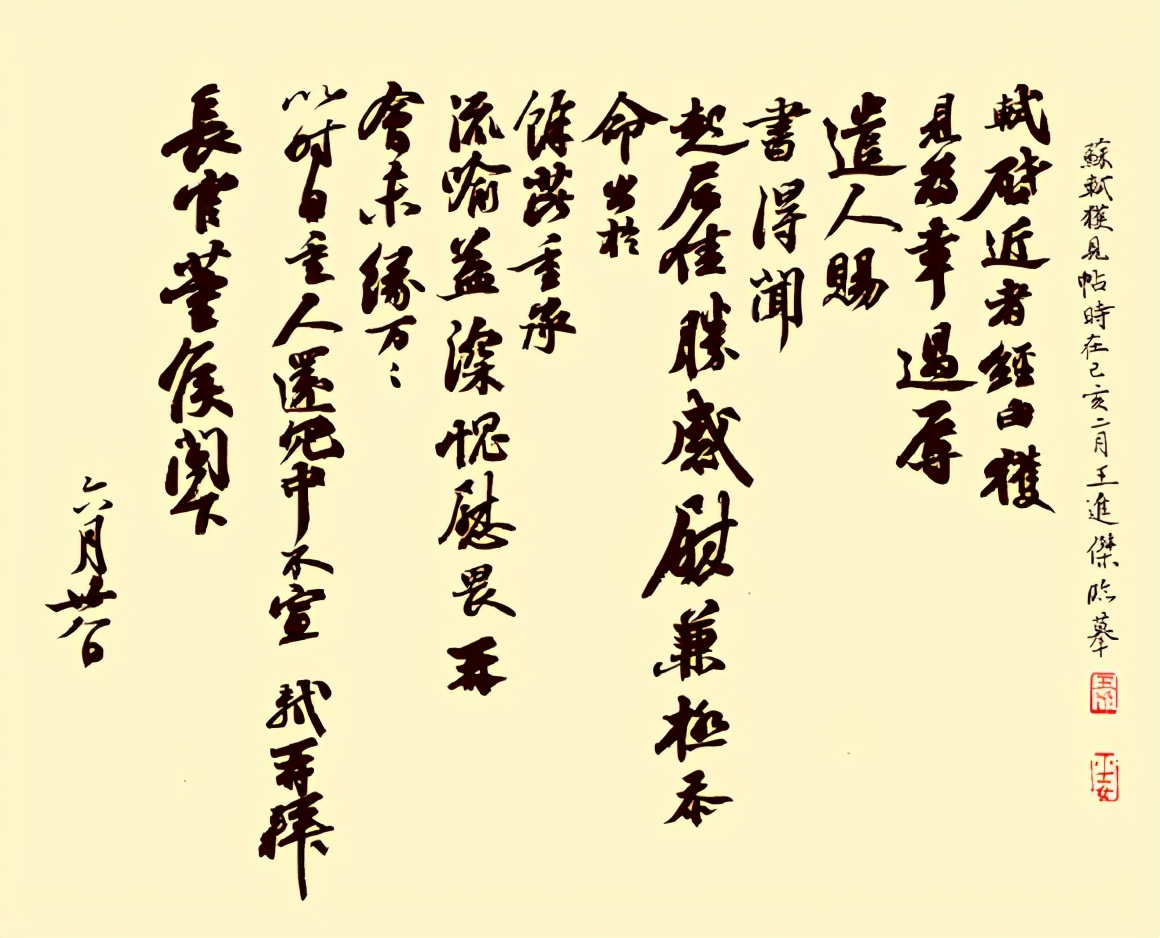 蘇軾獲見帖時在己亥二月王進傑臨摹
軾啓近者經由獲
見為幸過辱
遣人賜
書得聞
起居佳勝感慰兼極忝
命出於
餘芘重承
流喻益深愧慰畏再
會未緣万〻
以时自重人還冗中不宣 軾再拜
長官董侯閣下
六月廿八日